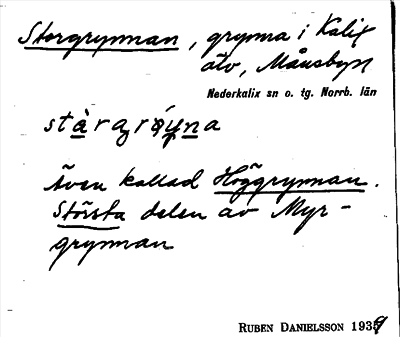 Storgrynnan, grynna i Kalix
älv, Månsbyn
Nederkalix sn o. tg. Norrb. län
även kallad Höggrynnan.
Största delen av Myr-
grynnan
RUBEN DANIELSSON 1939